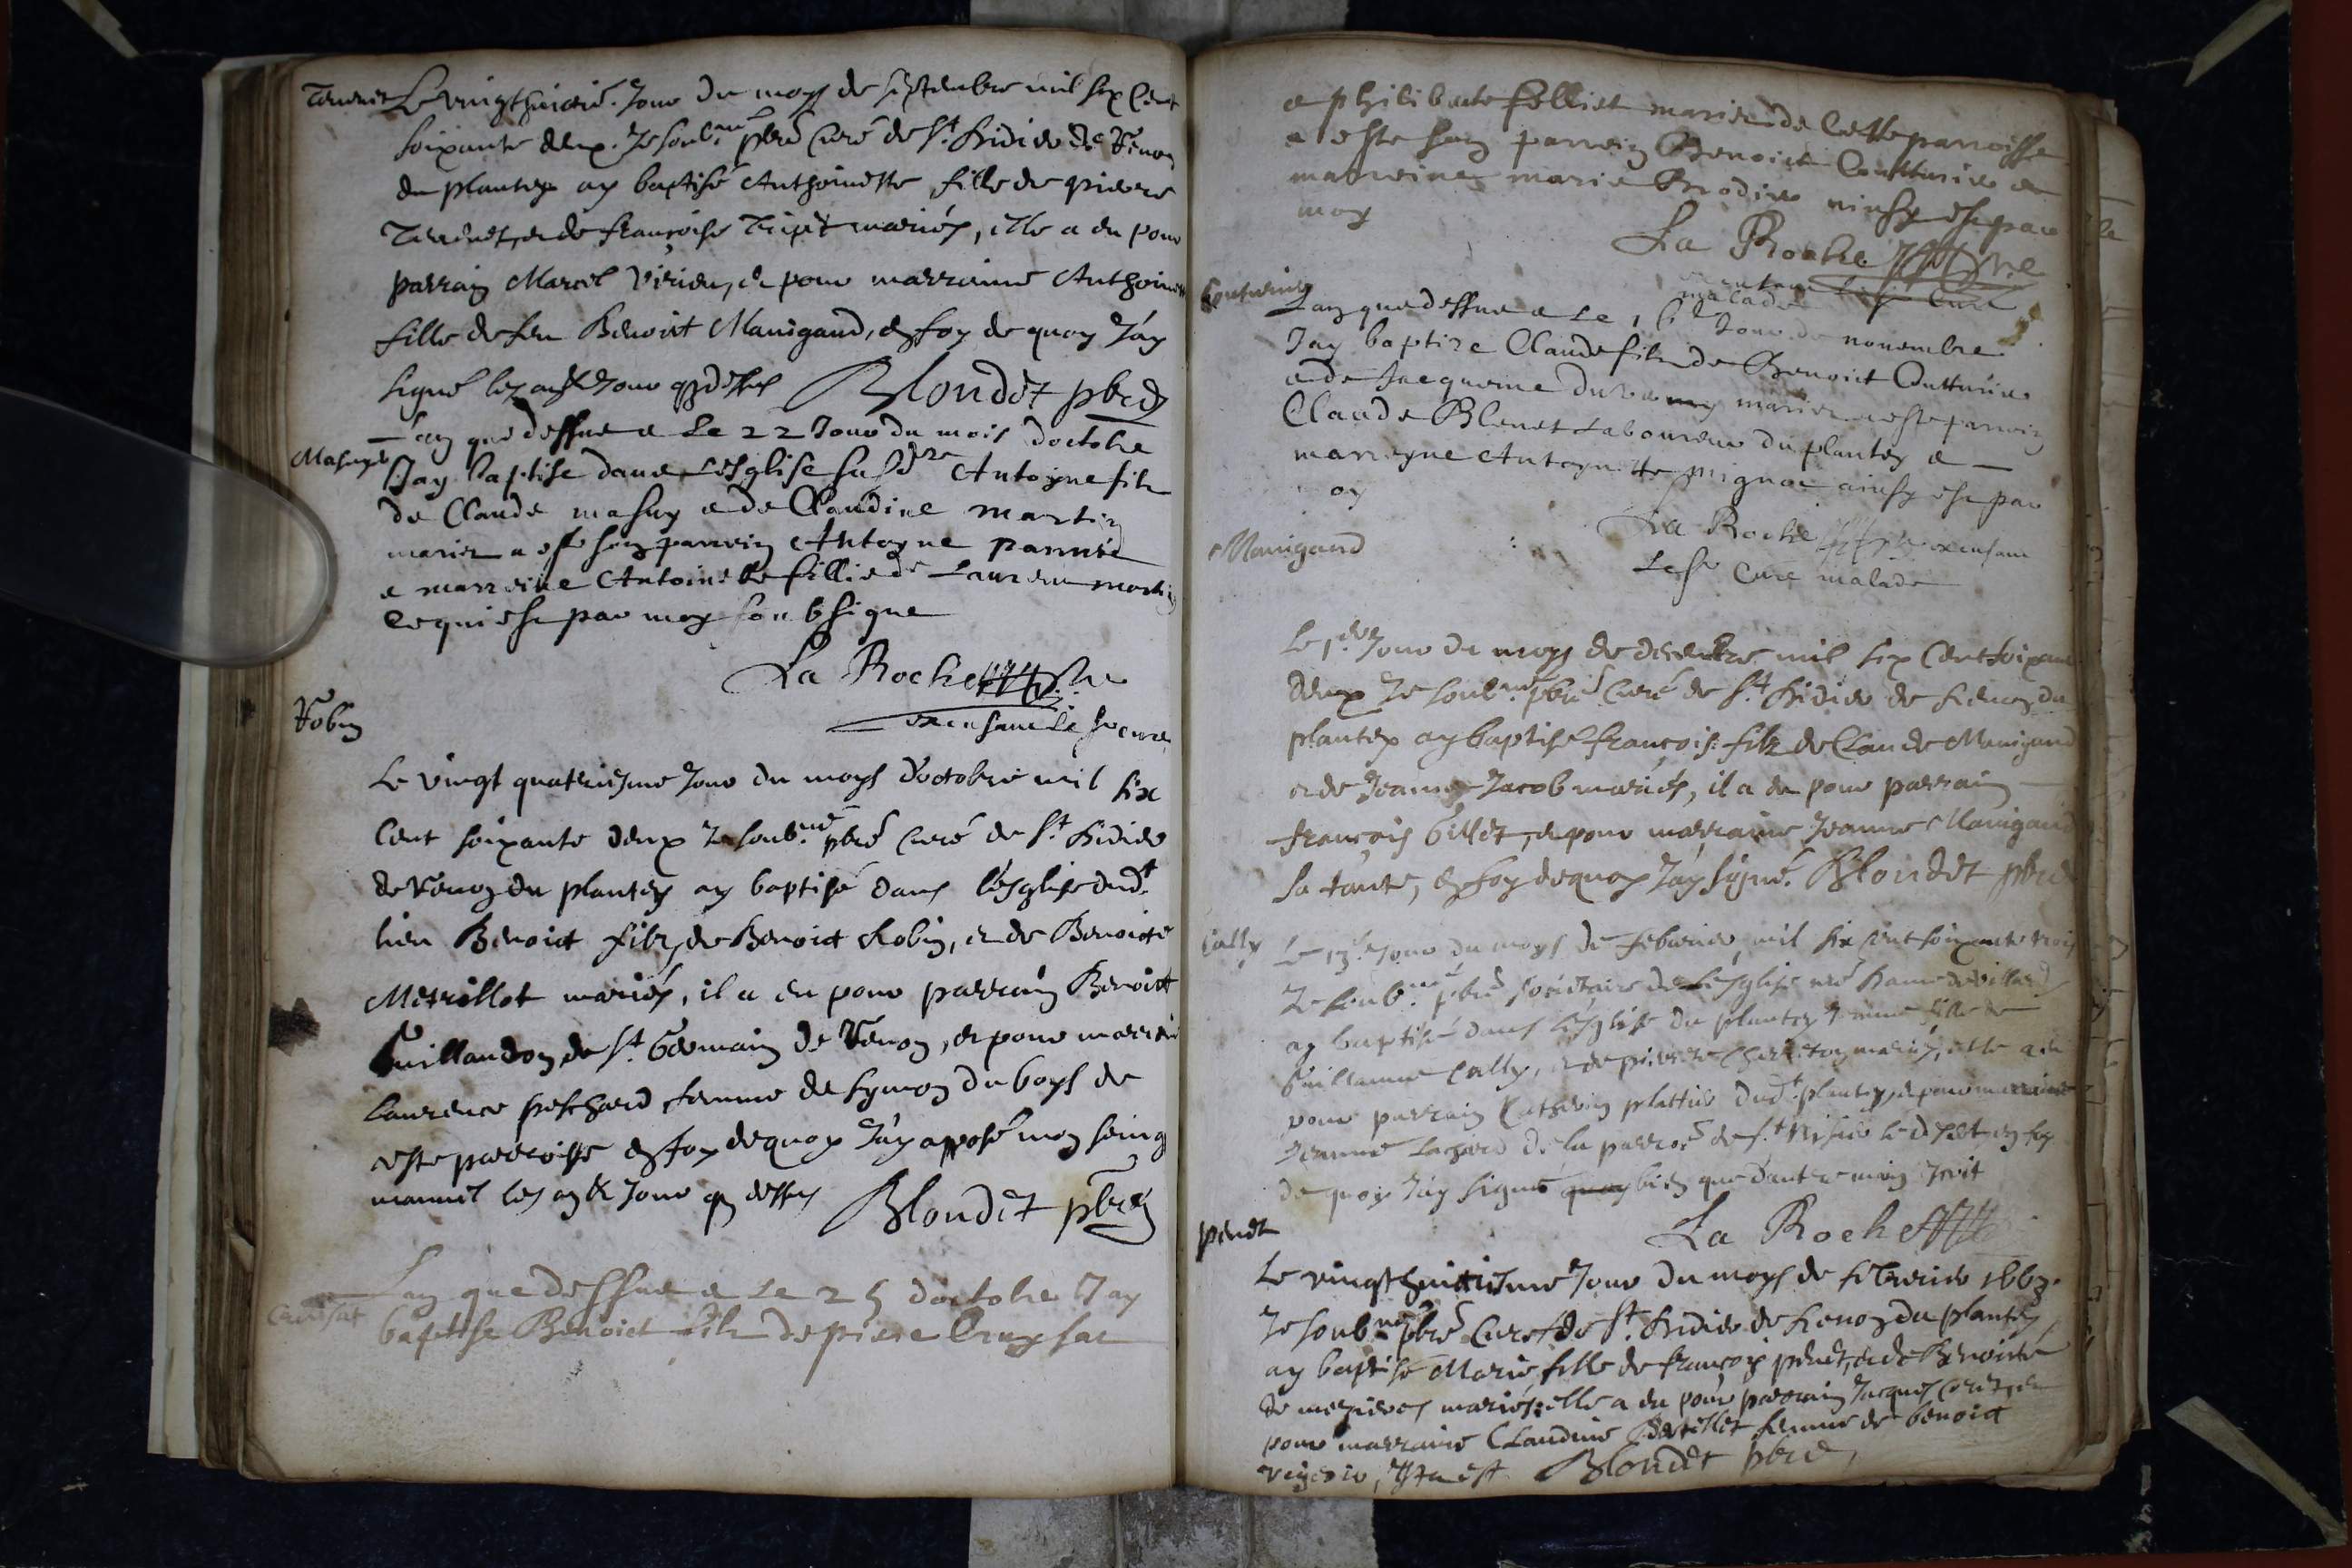 Le vingthuictié. Jour du moys de septembre mil six Cent
soixante deux. Je soub.né pbré Curé de St. Didier de Renon
du plantey ay baptisé Anthoinette fille de pierre
et de françoise mariés, elle a eu pour
parrain Marcel Virieu, et pour marraine Anthoinette
fille de feu Benoict Manigand, en foy de quoy J'ay
signé les an & Jour q dessus Blondet pbre
Masuy
Lan que dessus e Le 22 Jour du mois doctobre
Jay baptise dans Lesglise susdte Antoyne filz
de Claude masuy e de Claudine martin
mariez a este son parrein Antoyne
e marreine Antoinette fillie de Laurens martin
Ce qui est par moy soubsigne
La Roche pbre
excusant le sr cure
Robin
Le vingt quatriesme Jour du moys d'octobre mil six
Cent soixante deux Je soub.né pbré Curé de St. Didier
de Renon du plantey ay baptisé dans l'esglise dudt
lieu Benoict filz de Benoict Robin, et de Benoicte
Metrillot mariés, il a eu pour parrain Benoict
Guillaudon de St. Germain de Renon, et pour marraine
Laurence peschard femme de Symon du boys de
ceste parroisse en foy de quoy J'ay apposé mon seing
manuel les an & Jour q dessus Blondet pbre
Lan que dessus e Le 25 doctobre Jay
baptise Benoict filz de piere Cruysat
e philiberte folliet mariez de Cette parroisse
a este son parrein Benoict Coutturier e
marreine marie Brodier ainsy est par
moy
La Roche pbre
excusant le sr Curé
malade
Couturier
Lan que dessus e Le Jour de novembre
Jay baptize Claude filz de Benoict Coutturier
e de Jacqueme mariez a este parrein
Claude Blenet Laboureur du plantey e
marreyne Antoynette mignat ainsy est par
moy
La Roche pbre excusant
Le sr Curé malade
Manigand
Le 1er Jour du moys de decembre mil six Cent soixante
deux Je soub.né pbré Curé de St. Didier de Renon du
plantey ay baptisé françois filz de Claude Manigand
et de Jeanne Jacob mariés, il a eu pour parrain
françois Gillet, et pour marraine Jeanne Manigand
sa tante, en foy de quoy J'ay signé. Blondet pbre
Cally
Le 13e Jour du moys de febvrier mil six cent soixante trois
Je soub.né pbré sociétaire de Lesglise nre Dame de Villars
ay baptisé dans l'esglise du plantey Jeanne fille de
Guillaume Cally, et de pierrete Charreton mariés, elle a eu
pour parrain Catherin plattier dudt. plantey, et pour marraine
Jeanne Lachard de la parroé de St. Nisier le desert en foy
de quoy J'ay signé bien que d'autre main escrit
La Roche
penet
Le vingthuictiesme Jour du moys de febvrier 1663.
Je soub.né pbré Curé de St. Didier de Renon du plantey,
ay baptisé Marie, fille de françois penet, et de Benoicte
de mezieres mariés: elle a eu pour parrain Jacques et
pour marraine Claudine femme de benoict
Ita est Blondet pbre